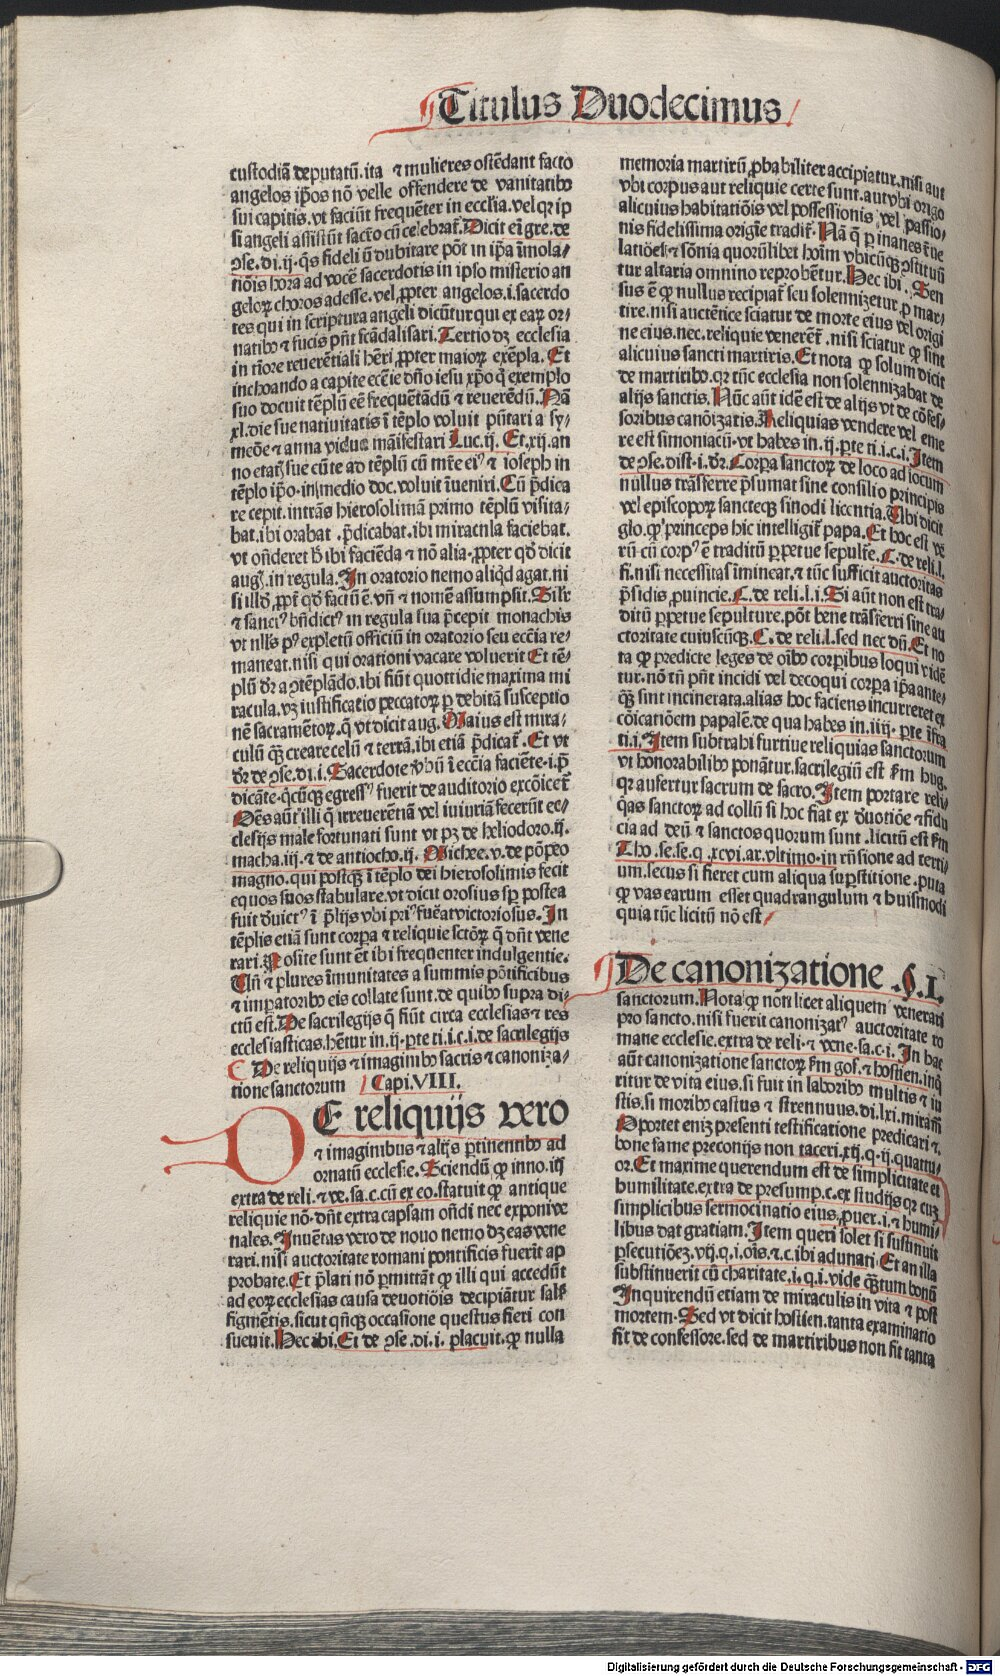 Titulus Duodecimus
custodiā deputatū. ita ⁊ mulieres ostēdant facto
angelos ip̄os nō velle offendere de vanitatibꝰ
sui capitis. vt faciūt frequēter in eccl̄ia. vel qꝛ ip
si angeli assistūt sacr̄o cū celebrat̄. Dicit em̄ gre. de
ꝯse. di. ij. q̄s fideliū dubitare pōt in ip̄a īmola-
tiōis hora ad vocē sacerdotis in ipso misterio an
geloꝝ choros adesse. vel ꝓpter angelos .i. sacerdo
tes qui in scriptura angeli dicūtur qui ex eaꝝ or-
natibꝰ ⁊ fucis pn̄t scādalisari. Tertio dꝫ ecclesia
in tiore reuerētiali hēri ꝓpter maioꝝ exēpla. Et
inchoando a capite ecc̄ie dn̄o iesu xp̄o q̄ exemplo
suo docuit tēplū eē frequētādū ⁊ reuerēdū. Nā
xl. die sue natiuitatis ī tēplo voluit pn̄tari a sy-
meōe ⁊ anna vidua māifestari Luc. ij. Et. xij. an
no etat̄ sue cū te ad tēplū cū mr̄e eiꝰ ⁊ ioseph in
tēplo ip̄o. in medio doc. voluit īueniri. Cū p̄dica
re cepit. intrās hierosolimā primo tēplū visita-
bat. ibi orabat . p̄dicabat. ibi miracula faciebat.
vt on̄deret ibi faciēda ⁊ nō alia. ꝓpter qd̄ dicit
aug. in regula. In oratorio nemo aliqd agat. ni
si illd̄. ꝓpt̄ qd̄ factū ē. vn̄ ⁊ nomē assumpsit. Silr̄
⁊ sanctꝰ bn̄dictꝰ in regula sua p̄cepit monachis
vt nllꝰ pꝰ expletū officiū in oratorio seu ecc̄ia re-
maneat. nisi qui orationi vacare voluerit Et tē-
plū dr̄ a ꝯtēplādo. ibi fiūt quottidie maxima mi
racula. vꝫ iustificatio peccatoꝝ ꝑ debitā susceptio
nē sacramētoꝝ. q̄ vt dicit aug. Maius est mira-
culū qꝫ creare celū ⁊ terrā. ibi etiā p̄dicat̄. Et vt
dr̄ de ꝯse. di. i. Sacerdote v̄bū ī ecc̄ia faciēte .i. p̄
dicāte. q̄cūqꝫ egressꝰ fuerit de auditorio excōicet̄
Oēs aūt illi q̄ irreuerētiā vel iniuriā fecerūt ec-
clesijs male fortunati sunt vt pꝫ de heliodoro. ij.
macha. iij. ⁊ de antiocho. ij. Michee. v. de pōpeo
magno. qui postqꝫ ī tēplo dei hierosolimis fecit
equos suos stabulare. vt dicit orosius sp̄ postea
fuit deuictꝰ ī p̄lijs vbi priꝰ fuēat victoriosus. In
tēplis etiā sunt corpa ⁊ reliquie sctōꝝ q̄ dn̄t vene
rari. Posite sunt ēt ibi frequenter indulgentie.
Un̄ ⁊ plures īmunitates a summis pōtificibus
⁊ imperatoribꝰ eis collate sunt. de quibꝰ supra di-
ctū est. De sacrilegijs q̄ fiūt circa ecclesias ⁊ res
ecclesiasticas. hētur in. ij. pte ti. i. c. i. de sacrilegijs
De reliquijs ⁊ imaginibꝰ sacris ⁊ canoniza-
tione sanctorum Capi. VIII.
DE reliquijs vero
⁊ imaginibus ⁊ alijs ꝑtinentibꝰ ad
ornatū ecclesie. Sciendū ꝙ inno. iiij
extra de reli. ⁊ ve. sa. c. cū ex eo. statuit ꝙ antique
reliquie nō dn̄t extra capsam on̄di nec exponi ve
nales. Inuētas vero de nouo nemo dꝫ eas vene
rari. nisi auctoritate romani pontificis fuerīt ap
probate. Et p̄lati nō ꝑmittāt ꝙ illi qui accedūt
ad eoꝝ ecclesias causa deuotiōis decipiātur falſ
figmētis. sicut qn̄qꝫ occasione questus fieri con
sueuit. Hec ibi. Et de ꝯse. di. i. placuit. ꝙ nulla
memoria martirū ꝓbabiliter accipiatur. nisi aut
vbi corpus aut reliquie certe sunt. aut vbi origo
alicuius habitatiōis vel possessionis vel passio-
nis fidelissima origīe tradit̄. Nā q̄ ꝑ inanes re
latiōes ⁊ sōmia quorūlibet hoīm vbicūqꝫ ꝯstituū
tur altaria omnino reprobētur. Hec ibi. Sen
sus ē ꝙ nullus recipiat̄ seu solennizetur ꝓ mar-
tire. nisi auctētice sciatur de morte eius vel origi
ne eius. nec. reliquie venerēt̄. nisi sciatur ꝙ sint
alicuius sancti martiris. Et nota ꝙ solum dicit
de martiribꝰ. qꝛ tūc ecclesia non solennizabat de
alijs sanctis. Nūc aūt idē est de alijs vt de cōfes-
soribus canōizatis. Reliquias vendere vel eme
re est simoniacū. vt habes in. ij. pte ti. i. c. i. Item
de ꝯse. dist. i. dr̄. Corpa sanctoꝝ de loco ad locum
nullus trāsferre p̄sumat sine consilio principis
vel episcopoꝝ sancteqꝫ sinodi licentia. Ubi dicit
glo. ꝙ princeps hic intelligit̄ papa. Et hoc est ve
rū cū corpꝰ ē traditū ꝑpetue sepult̄e. C. de reli. l.
fi. nisi necessitas īmineat. ⁊ tūc sufficit auctoritas
p̄sidis ꝓuincie. C. de reli. l. i. Si aūt non est tra-
ditū ꝑpetue sepulture. pōt bene trāsferri sine au
ctoritate cuiuscūqꝫ. C. de reli. l. sed nec dū. Et no
ta ꝙ predicte leges de oībꝰ corpibus loqui vidē
tur. nō tn̄ pn̄t incidi vel decoqui corpa ip̄a ante-
qꝫ sint incinerata. alias hoc faciens incurreret ex
cōicatiōem papalē. de qua habes in. iiij. pte īfra
ti. i. Item subtrahi furtiue reliquias sanctorum
vt honorabilibꝰ ponātur. sacrilegiū est fm̄ hug.
qꝛ aufertur sacrum de sacro. Item portare reli-
q̄as sanctoꝝ ad collū si hoc fiat ex deuotiōe ⁊ fidu
cia ad deū ⁊ sanctos quorum sunt . licitū est fm̄
Tho. se. se. q. xcvi. ar. vltimo. in rn̄sione ad terti-
um. secus si fieret cum aliqua suꝑstitione. puta
ꝙ vas earum esset quadrangulum ⁊ huismodi
quia tūc licitū nō est
De canonizatione .§. I.
sanctorum. Nota ꝙ non licet aliquem venerari
pro sancto. nisi fuerit canonizatꝰ auctoritate ro
mane ecclesie. extra de reli. ⁊ vene. sa. c. i. In hac
aūt canonizatione sanctoꝝ fm̄ gof. ⁊ hostien. inq̄
ritur de vita eius. si fuit in laboribꝰ multis ⁊ iu
stis. si moribꝰ castus ⁊ strennuus. di. lxi. miramur
Oportet enim presenti testificatione predicari ⁊.
bone fame preconijs non taceri. xij. q. ij. quattu-
or. Et maxime querendum est de simplicitate ei
humilitate. extra de presump. c. ex studijs qꝛ cuꝫ
simplicibus sermocinatio eius. ꝓuer. i. ⁊ humi
libus dat gratiam. Item queri solet si sustinuit
ꝑsecutiōeꝫ. vij. q. i. oīs. ⁊. c. ibi adunati. Et an illa
substinuerit cū charitate. i. q. i. vide q̄tum bonū
Inquirendū etiam de miraculis in vita ⁊ post
mortem. Sed vt dicit hostien. tanta examinatio
fit de confessore. sed de martiribus non fit tanta
Digitalisierung gefördert durch die Deutsche Forschungsgemeinschaft - DFG